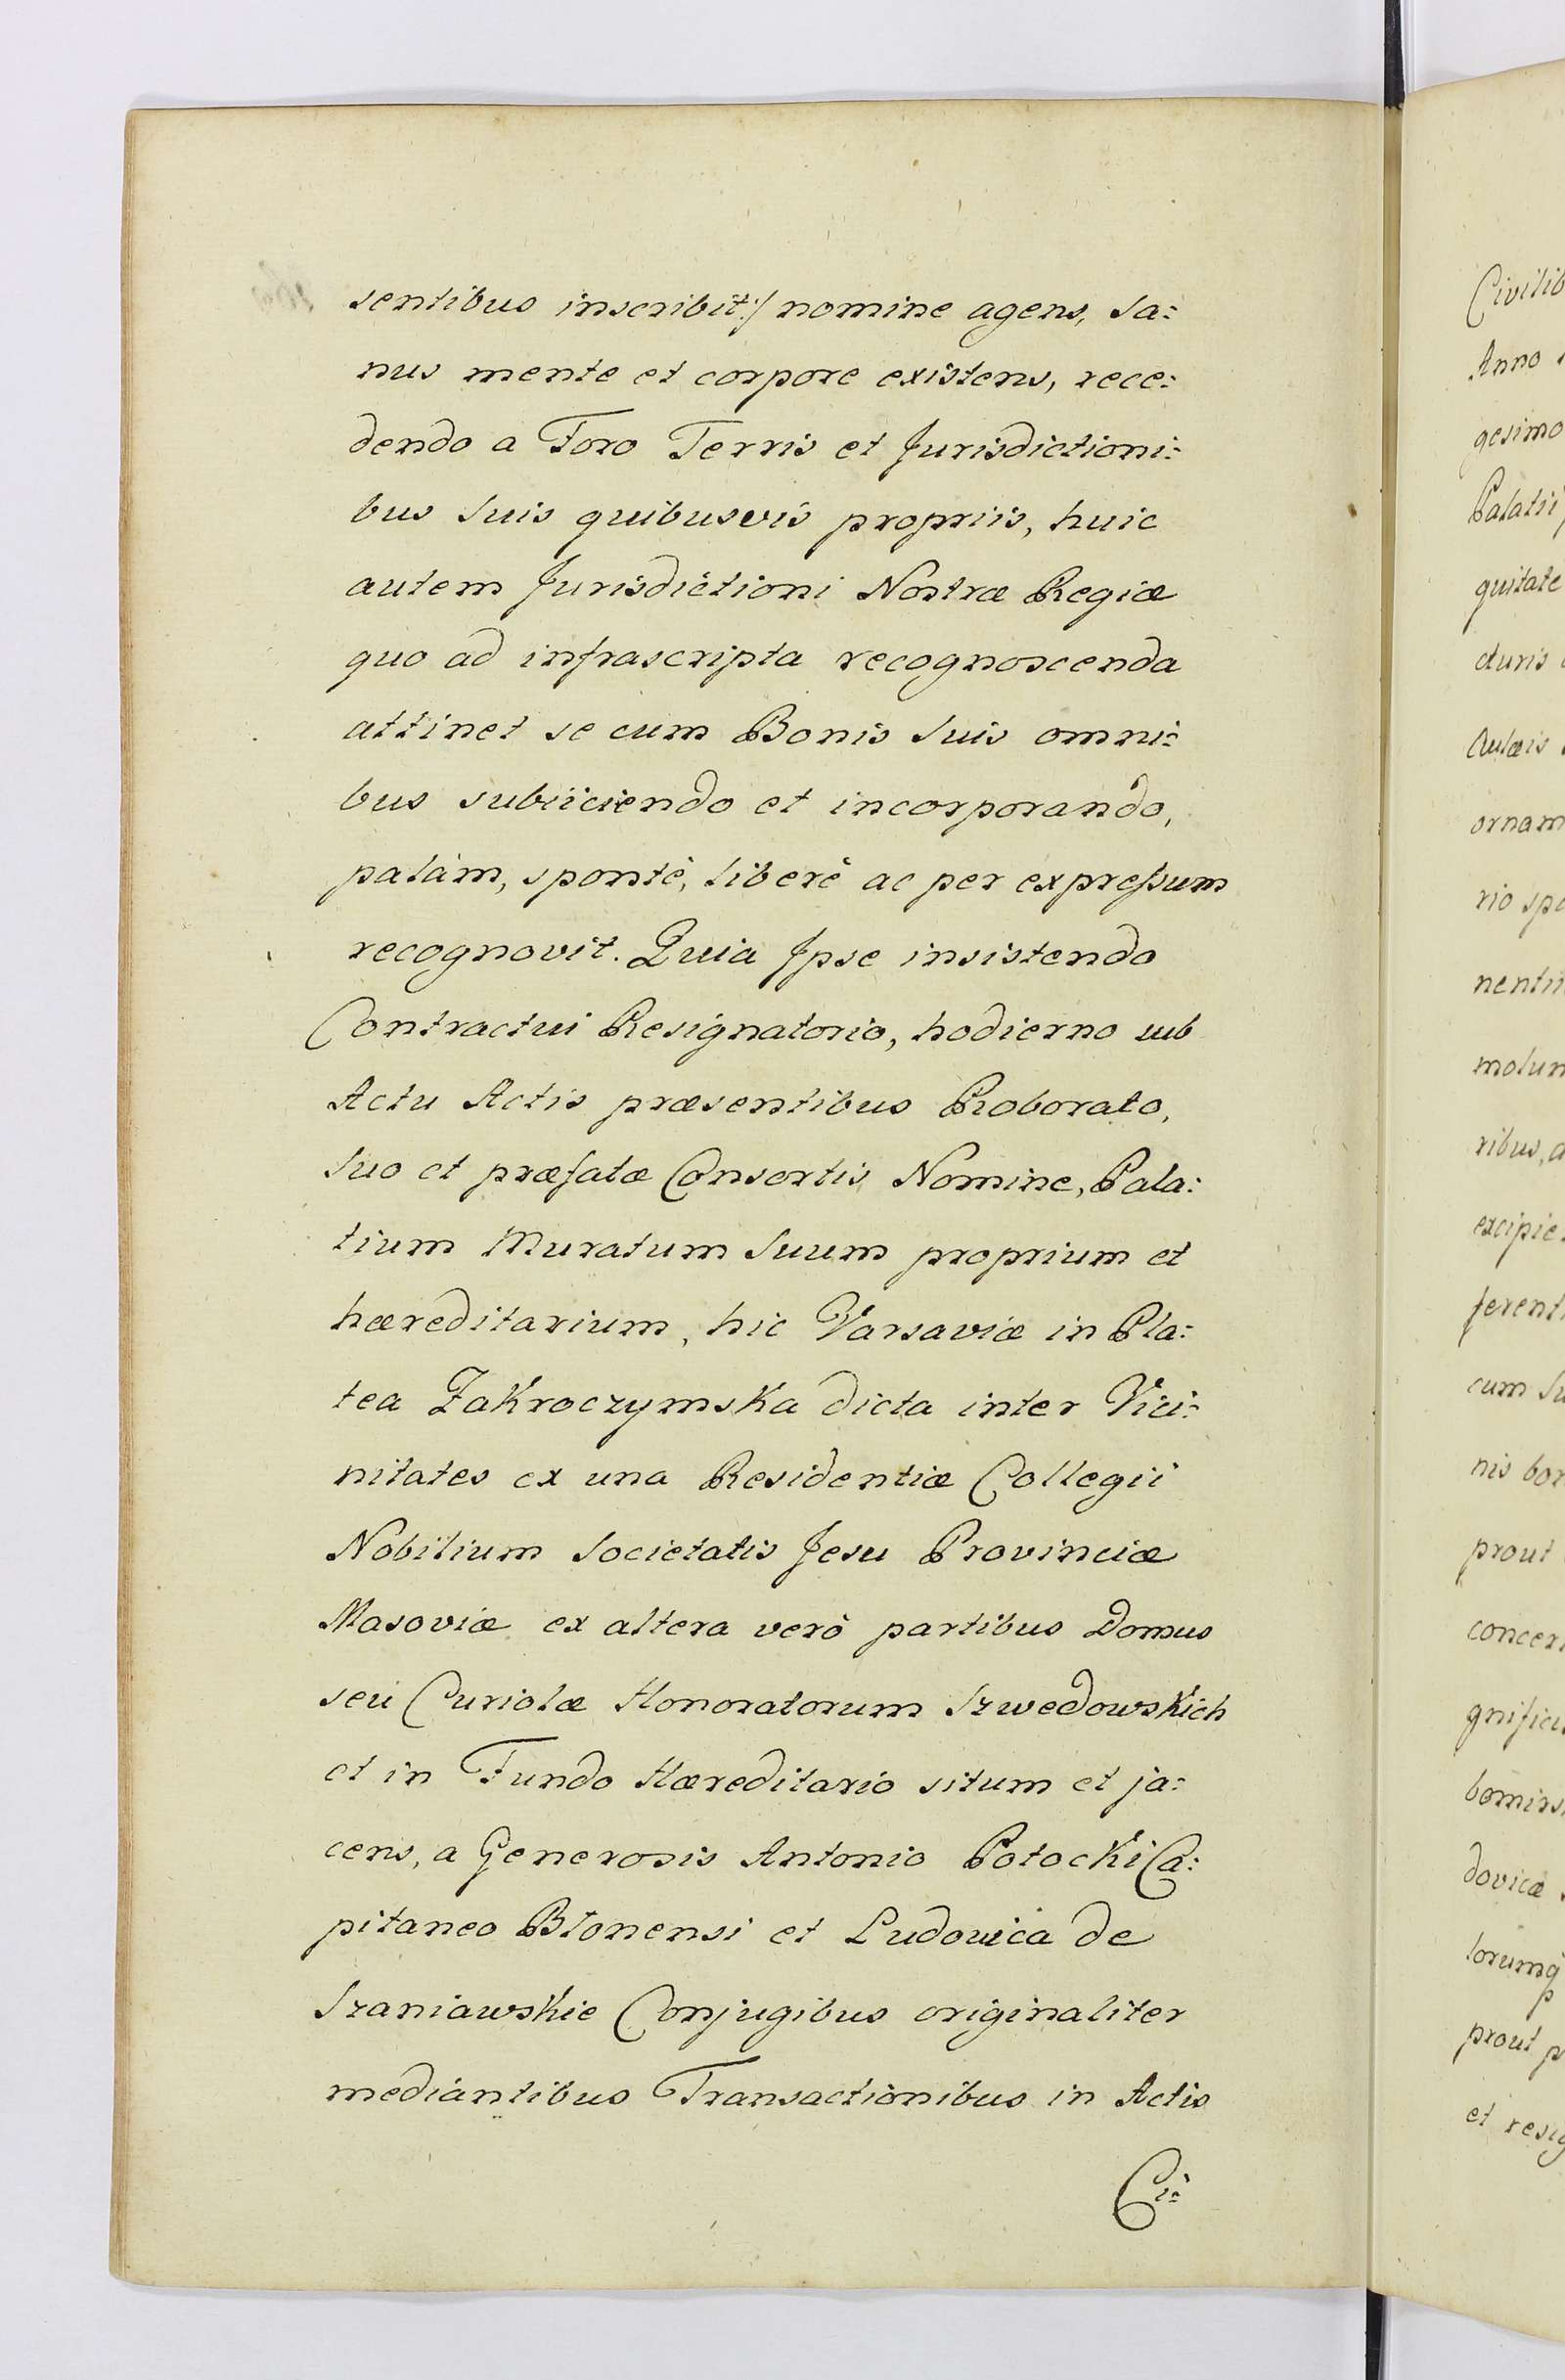 sentibus inscribit:/ nomine agens, Sa:
nus mente et corpore existens, rece:
dendo a Foro Terris et Jurisdictioni:
bus Suis quibusvis propriis, huic
autem Jurisdictioni Nostræ Regiæ
quo ad infrascripta recognoscenda
attinet se cum Bonis Suis omni:
bus subiiciendo et incorporando,
palàm, spontè, liberè ac per expressum
recognovit. Quia Ipse insistendo
Contractui Resignatorio, hodierno sub
Actu Actis præsentibus Roborato,
Suo et præfatæ Consortis Nomine, Pala:
tium Muratum Suum proprium et
hæreditarium, hic Varsaviæ in Pla:
tea Zakroczymska dicta inter Vici:
nitates ex una Residentiæ Collegii
Nobilium Societatis Jesu Provinciæ
Masoviæ ex altera verò partibus Domus
seu Curiolæ Honoratorum Szwedowskich
et in Fundo Hæreditario situm et ja:
cens, a Generosis Antonio Potocki Ca:
pitaneo Blonensi et Ludovica de
Szaniawskie Conjugibus originaliter
mediantibus Transactionibus in Actis
Ci:
Civilib
Anno
gesimo
Palatii
quitate
cturis
Aulæis
ornam
rio spe
nentii
molum
ribus, a
excipie
ferent
cum Su
nis bon
prout
concern
gnifici
bomirs
dovicæ
lorumq
prout p
et resig